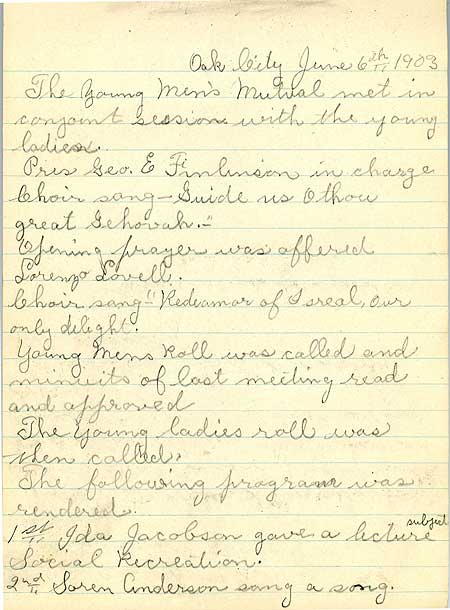 Oak City June 6th 1903
The Young Men's Mutual met in
conjoint session with the young
ladies.
Pres Geo. E Finlinson in charge
Choir sang - Guide us O thou
great Gehovah."
Opening prayer was offered
Lorenzo Lovell.
Choir sang "Redeamar of Isreal, our
only delight.
Young Mens Roll was called and
minuits of last meeting read
and approved
The Young ladies roll was
then called.
The following program was
rendered.
1st Ida Jacobson gave a lecture subject
Social Recreation.
2nd Soren Anderson sang a song.